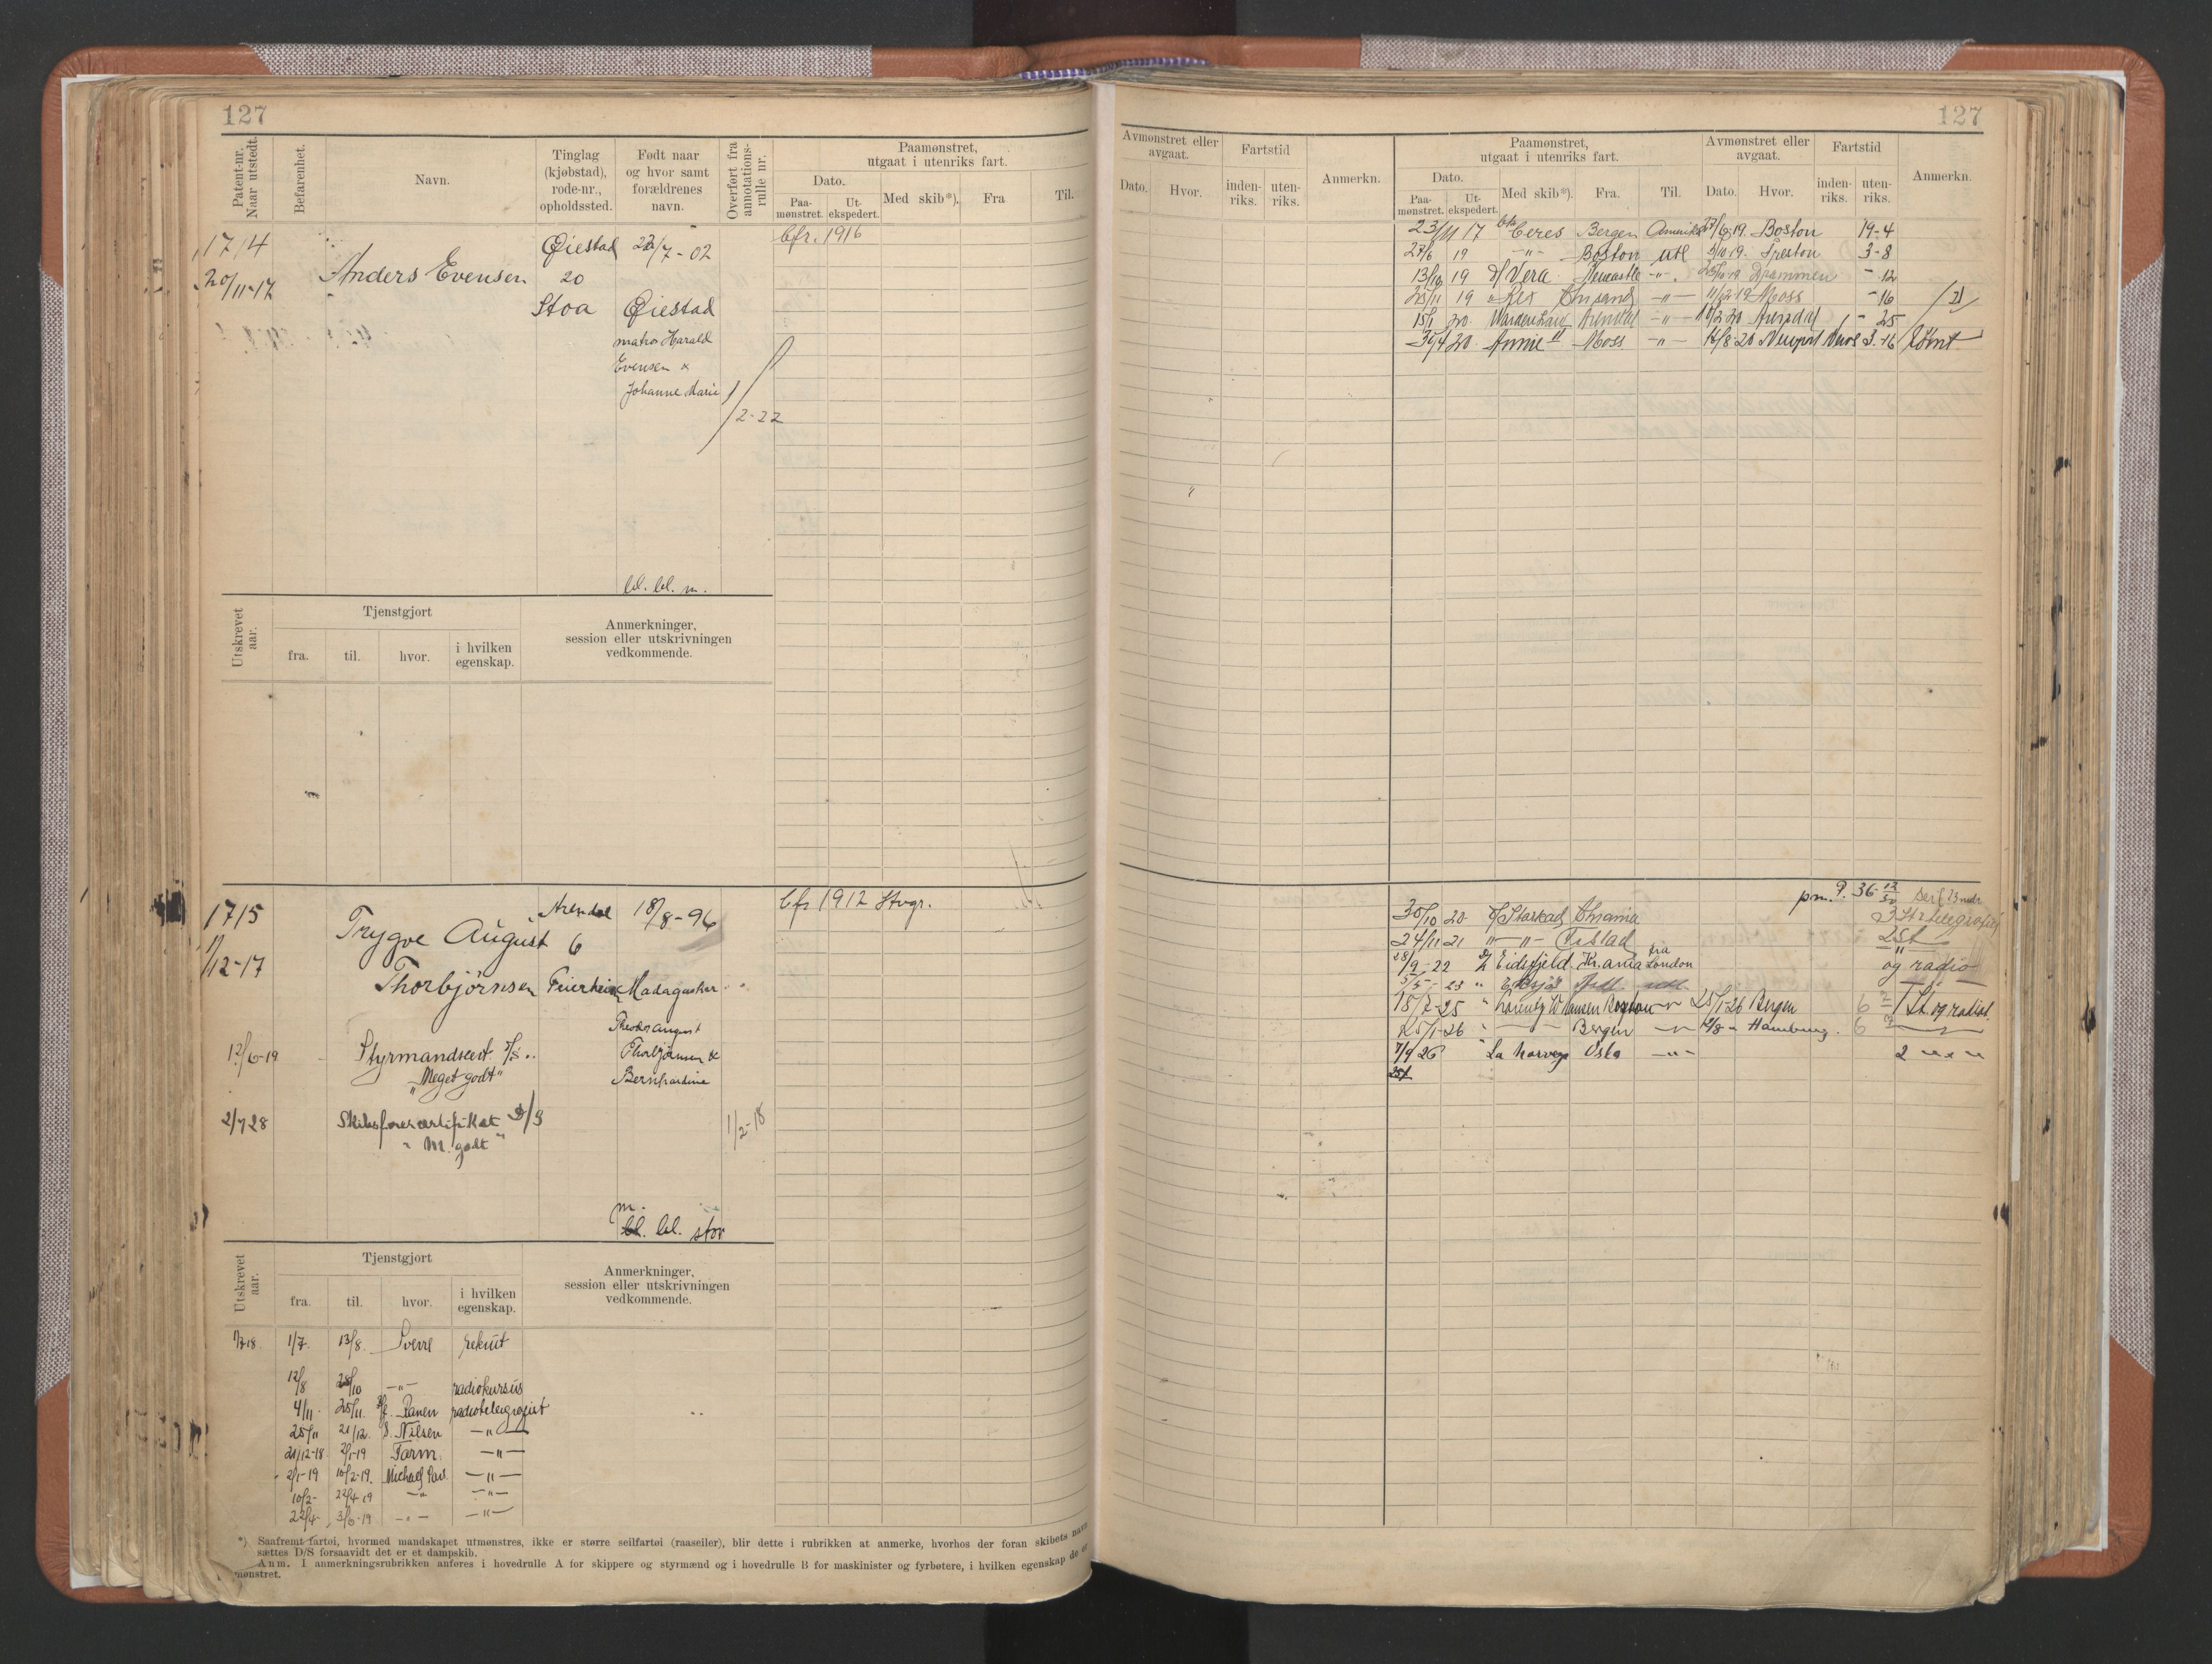 127
Patent-nr.
Naar utstedt.
Befarenhet.
Navn.
Tinglag
(kjøbstad),
rode-nr.,
opholdssted.
Født naar
og hvor samt
forældrenes
navn.
Overført fra
annotations-
rulle nr.
Paamønstret,
utgaat i utenriks fart.
Dato.
Paa-
mønstret.
Ut-
ekspedert.
Med skib*).
Fra
Til.
1714
20/11-17
Anders Evensen
Øiestad
20
Stoa
22/7-02
Øiestad
matros Harald
Evensen &
Johanne Marie
1/2-22
bfr. 1916
bl. bl. m.
Utskrevet
aar.
Tjenstgjort
fra.
til.
hvor.
i hvilken
egenskap.
Anmerkninger,
session eller utskrivningen
vedkommende.
1715
1/12-17
Trygve August
Thorbjørnsen
Arendal
6
18/8-96
Madagaskar
Theodor August
Thorbjørnsen &
Bernhardine
bfr 1912 Stvgr.
12/6-19
Styrmandscert. S/S
"Meget godt"
2/7 28
Skibsførercertifikat D/S
"M. godt"
1/2-18
m.
bl. bl. stor
Utskrevet
aar.
Tjenstgjort
fra.
til.
hvor.
i hvilken
egenskap.
Anmerkninger,
session eller utskrivningen
vedkommende.
1/7 18 1/7. 13/8. Sverre rekrut
12/8 28/10 -"- radiokursus
4/11 25/11. Ranen radiotelegrafist
25/11 21/12. Nilsen -"-
21/12-18 2/1-19 Farm -"-
2/1-19 10/2-19. Michael Sars -"-
10/2- 22/4-19 -"- -"-
22/4- 3/6-19 -"- -"-
*) Saafremt fartøi, hvormed mandskapet utmønstres, ikke er større seilfartøi (raaseiler), blir dette i rubrikken at anmerke, hvorhos der foran skibets navn
sættes D/S forsaavidt det er et dampskib.
Anm. I anmerkningsrubrikken anføres i hovedrulle A for skippere og styrmænd og i hovedrulle B for maskinister og fyrbøtere, i hvilken egenskap de er
mønstret.
127
Avmønstret eller
avgaat.
Dato.
Hvor.
Fartstid
inden-
riks.
uten-
riks.
Anmerkn.
Paamønstret,
utgaat i utenriks fart.
Dato.
Paa-
mønstret.
Ut-
ekspedert.
Med skib*).
Fra.
Til.
Avmønstret eller
avgaat.
Dato.
Hvor.
Fartstid
inden-
riks.
uten-
riks.
Anmerkn.
23/11 17 Ceres Bergen Amerika 23/6 19. Boston 19-4
27/6 19 -"- Boston utl 5/10 19. Preston 3-8
13/10 19 D/ Vera Newcastle -"- Drammen - 12
25/11 19 " Rex Chrsand -"- 11/12-19 Moss - 16
15/1 20. Arendal -"- 10/2 20 Arendal - 25
30/4 20. Annie Moss -"- 16/8-20 Newport News 3.-16
30/10 20 D/ Starkad Chrania
24/11 21 -"- Fristad 2 St
28/9-22 Eidsfjeld Kr.ania fra London og radio
3/5-23 "
15/7-25 " Lorentz W Hansen -"- 25/1-26 Bergen 6 1 St. og radiot.
25/1-26 " Bergen -"- Hamburg. 6
7/9 26 " La Norvega Oslo -"- 2 " " "